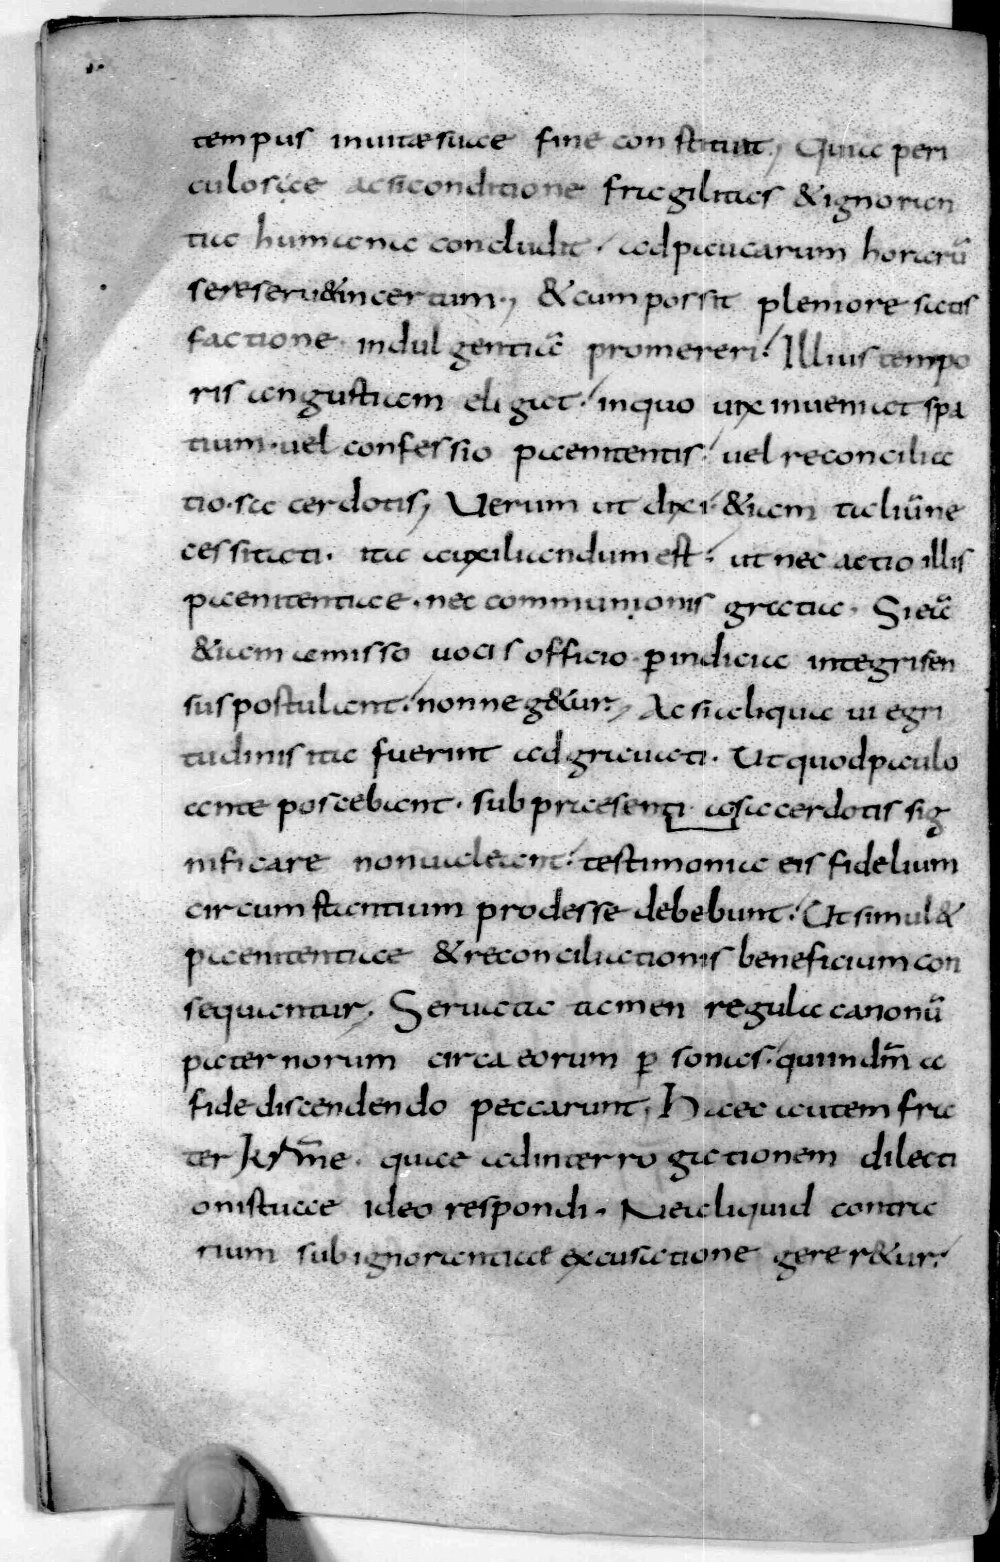 tempus in uitae suae fine constituit; Qui&a peri
culosae ac si conditione fragilitas & ignoran
tia humana concludit. ad paucarum horarū
se reseru& incertum; & cum possit pleniore satis
factione. indulgentiā promereri. Illius tempo
ris angustiam eligat. inquo uix inueniat spa
tium. uel confessio paenitentis. uel reconcilia
tio. sacerdotis; Uerum ut dixi. &iam taliū ne
cessitati. ita auxiliandum est. ut nec actio illis
paenitentiae. nec communionis gratia. Si eā
&iam amisso uocis officio. ꝑ indicia integri sen
sus postulant. non neg&ur; Ac si aliqua ui egri
tudinis ita fuerint adgrauati. Ut quod paulo
ante poscebant. sub praesenti io sacerdotis sig
nificare non ualeant. testimonia eis fidelium
circumstantium prodesse debebunt. Ut simul &
paenitentiae & reconciliationis beneficium con
sequantur; Seruata tamen regula canonū
paternorum circa eorum ꝑsonas. qui in dm̄ a
fide discendendo peccarunt; Haec autem fra
ter kr̄me. quae ad interrogationem dilecti
onis tuae ideo respondi. Ne aliquid contra
rium sub ignorantiae excusatione gerer&ur.